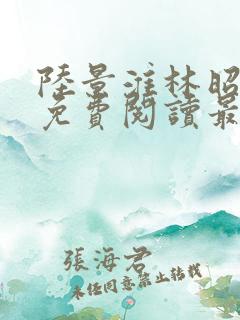 陸景淮林昭
免費閱讀最
張海君
未经同意禁止转载